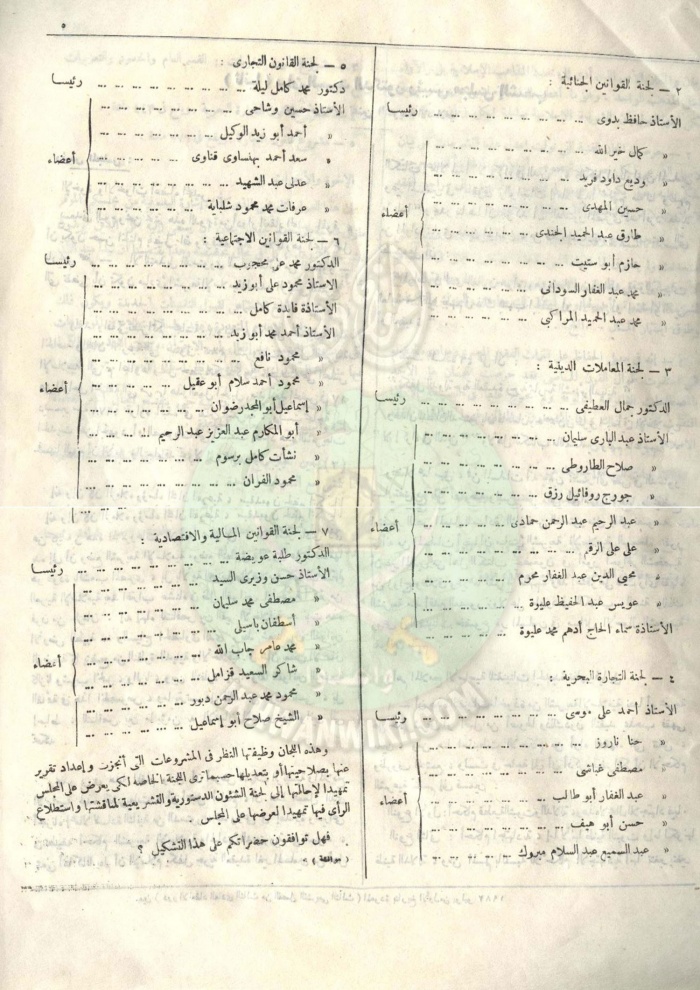 ٥
٢ — لجنة القوانين الجنائية :
الأستاذ حافظ بدوى ... ... ... ... ... ... رئيسا
» كمال خير الله ... ... ... ... ... ...
» وديع داود فريد ... ... ... ... ... ...
» حسين المهدى ... ... ... ... ... ...
» طارق عبد الحميد الجندى ... ... ... ... أعضاء
» حازم أبو ستيت ... ... ... ... ... ...
» محمد عبد الغفار السودانى ... ... ... ...
» محمد عبد الحميد المراكبى ... ... ... ...
٣ — لجنة المعاملات الدينية :
الدكتور جمال العطيفى ... ... ... ... ... ... رئيسا
الأستاذ عبد البارى سليمان ... ... ... ... ...
» صلاح الطاروطى ... ... ... ... ... ...
» جورج روفائيل رزق ... ... ... ... ...
» عبد الرحيم عبد الرحمن حمادى ... ... ... أعضاء
» على على الرقم ... ... ... ... ... ...
» محيى الدين عبد الغفار محرم ... ... ... ...
» عويس عبد الحفيظ عليوة ... ... ... ...
الأستاذة سماء الحاج أدهم محمد عليوة ... ... ...
٤ — لجنة التجارة البحرية :
الأستاذ أحمد على موسى ... ... ... ... ... رئيسا
» حنا ناروز ... ... ... ... ... ...
» مصطفى غباشى ... ... ... ... ... ...
» عبد الغفار أبو طالب ... ... ... ... ... أعضاء
» حسن أبو هيف ... ... ... ... ... ...
» عبد السميع عبد السلام مبروك ... ... ... ...
٥ — لجنة القانون التجارى :
دكتور محمد كامل ليلة ... ... ... ... ... ... رئيسا
الأستاذ حسين وشاحى ... ... ... ... ... ...
» أحمد أبو زيد الوكيل ... ... ... ... ...
» سعد أحمد بهنساوى قناوى ... ... ... ... أعضاء
» عدلى عبد الشهيد ... ... ... ... ... ...
» عرفات محمد محمود شلباية ... ... ... ...
٦ — لجنة القوانين الاجتماعية :
الدكتور محمد على محجوب ... ... ... ... ... رئيسا
الاستاذ محمود على أبو زيد ... ... ... ... ...
الأستاذة فايدة كامل ... ... ... ... ... ...
الأستاذ أحمد محمد أبو زيد ... ... ... ... ...
» محمود نافع ... ... ... ... ... ...
» محمود أحمد سلام أبو عقيل ... ... ... ... أعضاء
» إسماعيل أبو المجد رضوان ... ... ... ...
» أبو المكارم عبد العزيز عبد الرحيم ... ... ...
» نشأت كامل برسوم ... ... ... ... ...
» محمود الفران ... ... ... ... ... ...
٧ — لجنة القوانين المالية والاقتصادية :
الدكتور طلبة عويضة ... ... ... ... ... ... رئيسا
الأستاذ حسن وزيرى السيد ... ... ... ... ...
» مصطفى محمد سلمان ... ... ... ... ...
» أسطفان باسيلى ... ... ... ... ... ...
» محمد عامر جاب الله ... ... ... ... ...
» شاكر السعيد قزامل ... ... ... ... ... أعضاء
» محمود محمد عبد الرحمن دبور ... ... ... ...
» الشيخ صلاح أبو إسماعيل ... ... ... ...
وهذه اللجان وظيفتها النظر فى المشروعات التى أنجزت وإعداد تقرير
عنها بصلاحيتها أو بتعديلها حسبما ترى اللجنة الخاصة لكى يعرض على المجلس
تمهيدا لإحالتها إلى لجنة الشئون الدستورية والتشريعية لمناقشتها واستطلاع
الرأى فيها تمهيدا لعرضها على المجلس .
فهل توافقون حضراتكم على هذا التشكيل ؟
( موافقة )